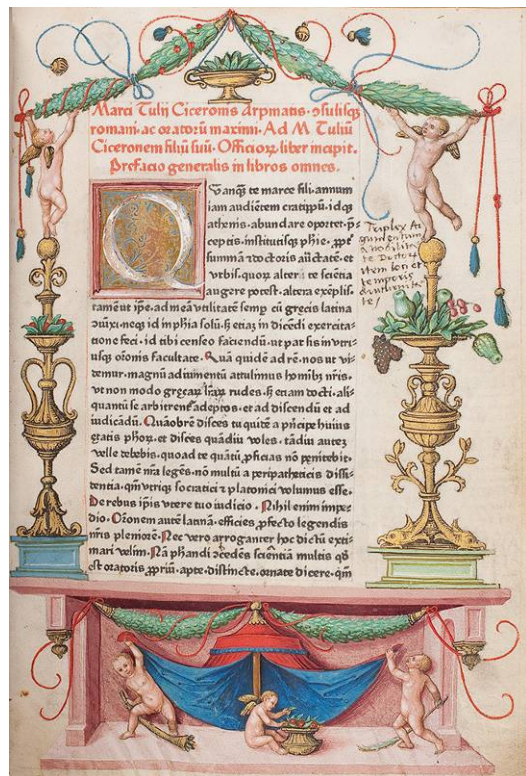 Marci Tulii Ciceronis Arpinatis · ꝯsulisqꝫ
romani · ac oratorū maximi · Ad M Tuliū
Ciceronem filiū suū · Officioꝝ liber incipit ·
Prefacio generalis in libros omnes ·
Quanqꝫ te marce fili · annum
iam audiētem cratippū · idqꝫ
athenis · abundare oportet · p̄
ceptis · institutisqꝫ phīe · ꝓpt̄
summā ⁊ doctoris auctātē · et
vrbis · quoꝝ alter te sciētia
augere potest · altera exēplis ·
tamē ut ip̄e · ad meā vtilitatē semꝑ cū grecis latina
ꝯiūxi · neqꝫ id in phīa solū · sꝫ etiaꝫ in dicēdi exercita-
tione feci · id tibi censeo faciēdū · ut par sis in vtri-
usqꝫ orōnis facultate · Quā quidē ad rē · nos ut vi-
demur · magnū adiumentū attulimus homībꝫ nr̄is ·
vt non modo grecaꝝ lr̄aꝝ rudes · sꝫ etiam docti · ali-
quantū se arbitrent᷑ adeptos · et ad discendū et ad
iudicādū · Quāobrē disces tu quitē a pn̄cipe huius
etatis phoꝝ · et disces quādiu voles · tādiu autez
velle debebis · quoad te quātū ꝓficias nō penitebit ·
Sed tamē nr̄a legēs · nō multū a peripatheticis dissi-
dentia · qm̄ vtriqꝫ socratici ⁊ platonici volumus esse ·
De rebus ip̄is vtere tuo iudicio · Nihil enim impe-
dio · Orōnem autē latinā · efficies ꝓfecto legendis
nr̄is pleniorē · Nec vero arroganter hoc dictū exti-
mari velim · Nā phandi ꝯcedēs sciētiā multis · qd̄
est oratoris ꝓpriū · apte · distincte · ornate dicere · qm̄
Triplex